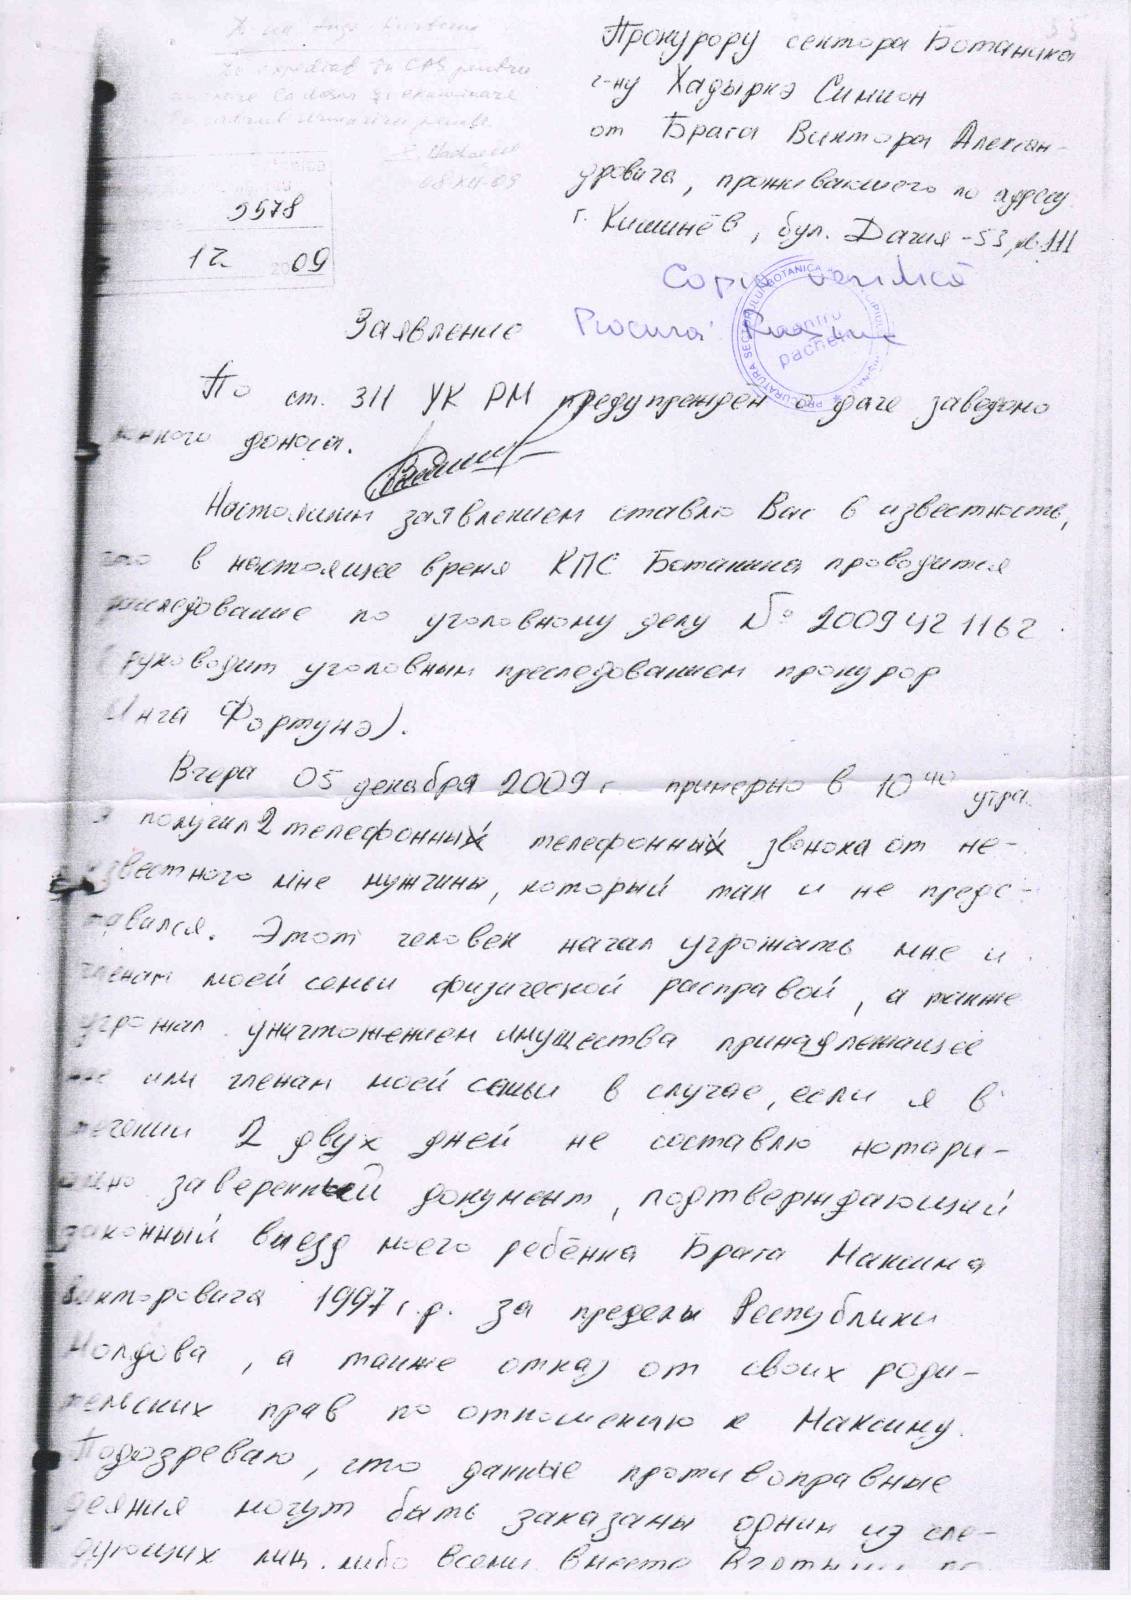 35
Прокурору сектора Ботаника
г-ну Хадыркэ Симион
от Брага Виктора Алексан-
дровича, проживающего по адресу
г. Кишинёв, бул. Дачия-53, кв. 111
5578
12 2009
08.XII.09
Copia
Procura
PROCURATURA SECTORULUI BOTANICA
pentru
pachete
Заявление
По ст. 311 УК РМ предупреждён о даче заведомо
ложного доноса.
Настоящим заявлением ставлю Вас в известность,
что в настоящее время КПС Ботаника проводится
расследование по уголовному делу № 2009421162
(руководит уголовным преследованием прокурор
Инга Фортунэ).
Вчера 05 декабря 2009 г. примерно в 10 40 утра
я получил 2 телефонных телефонных звонока от не-
известного мне мужчины, который так и не предс-
тавился. Этот человек начал угрожать мне и
членам моей семьи физической расправой, а также
угрожал уничтожением имущества принадлежащее
мне или членам моей семьи в случае, если я в
течении 2 двух дней не составлю нотари-
ально заверенный документ, подтверждающий
законный выезд моего ребёнка Брага Максима
Викторовича 1997 г.р. за пределы Республики
Молдова, а также отказ от своих роди-
тельских прав по отношению к Максиму.
Подозреваю, что данные противоправные
деяния могут быть заказаны одним из сле-
дующих лиц, либо всеми вместе